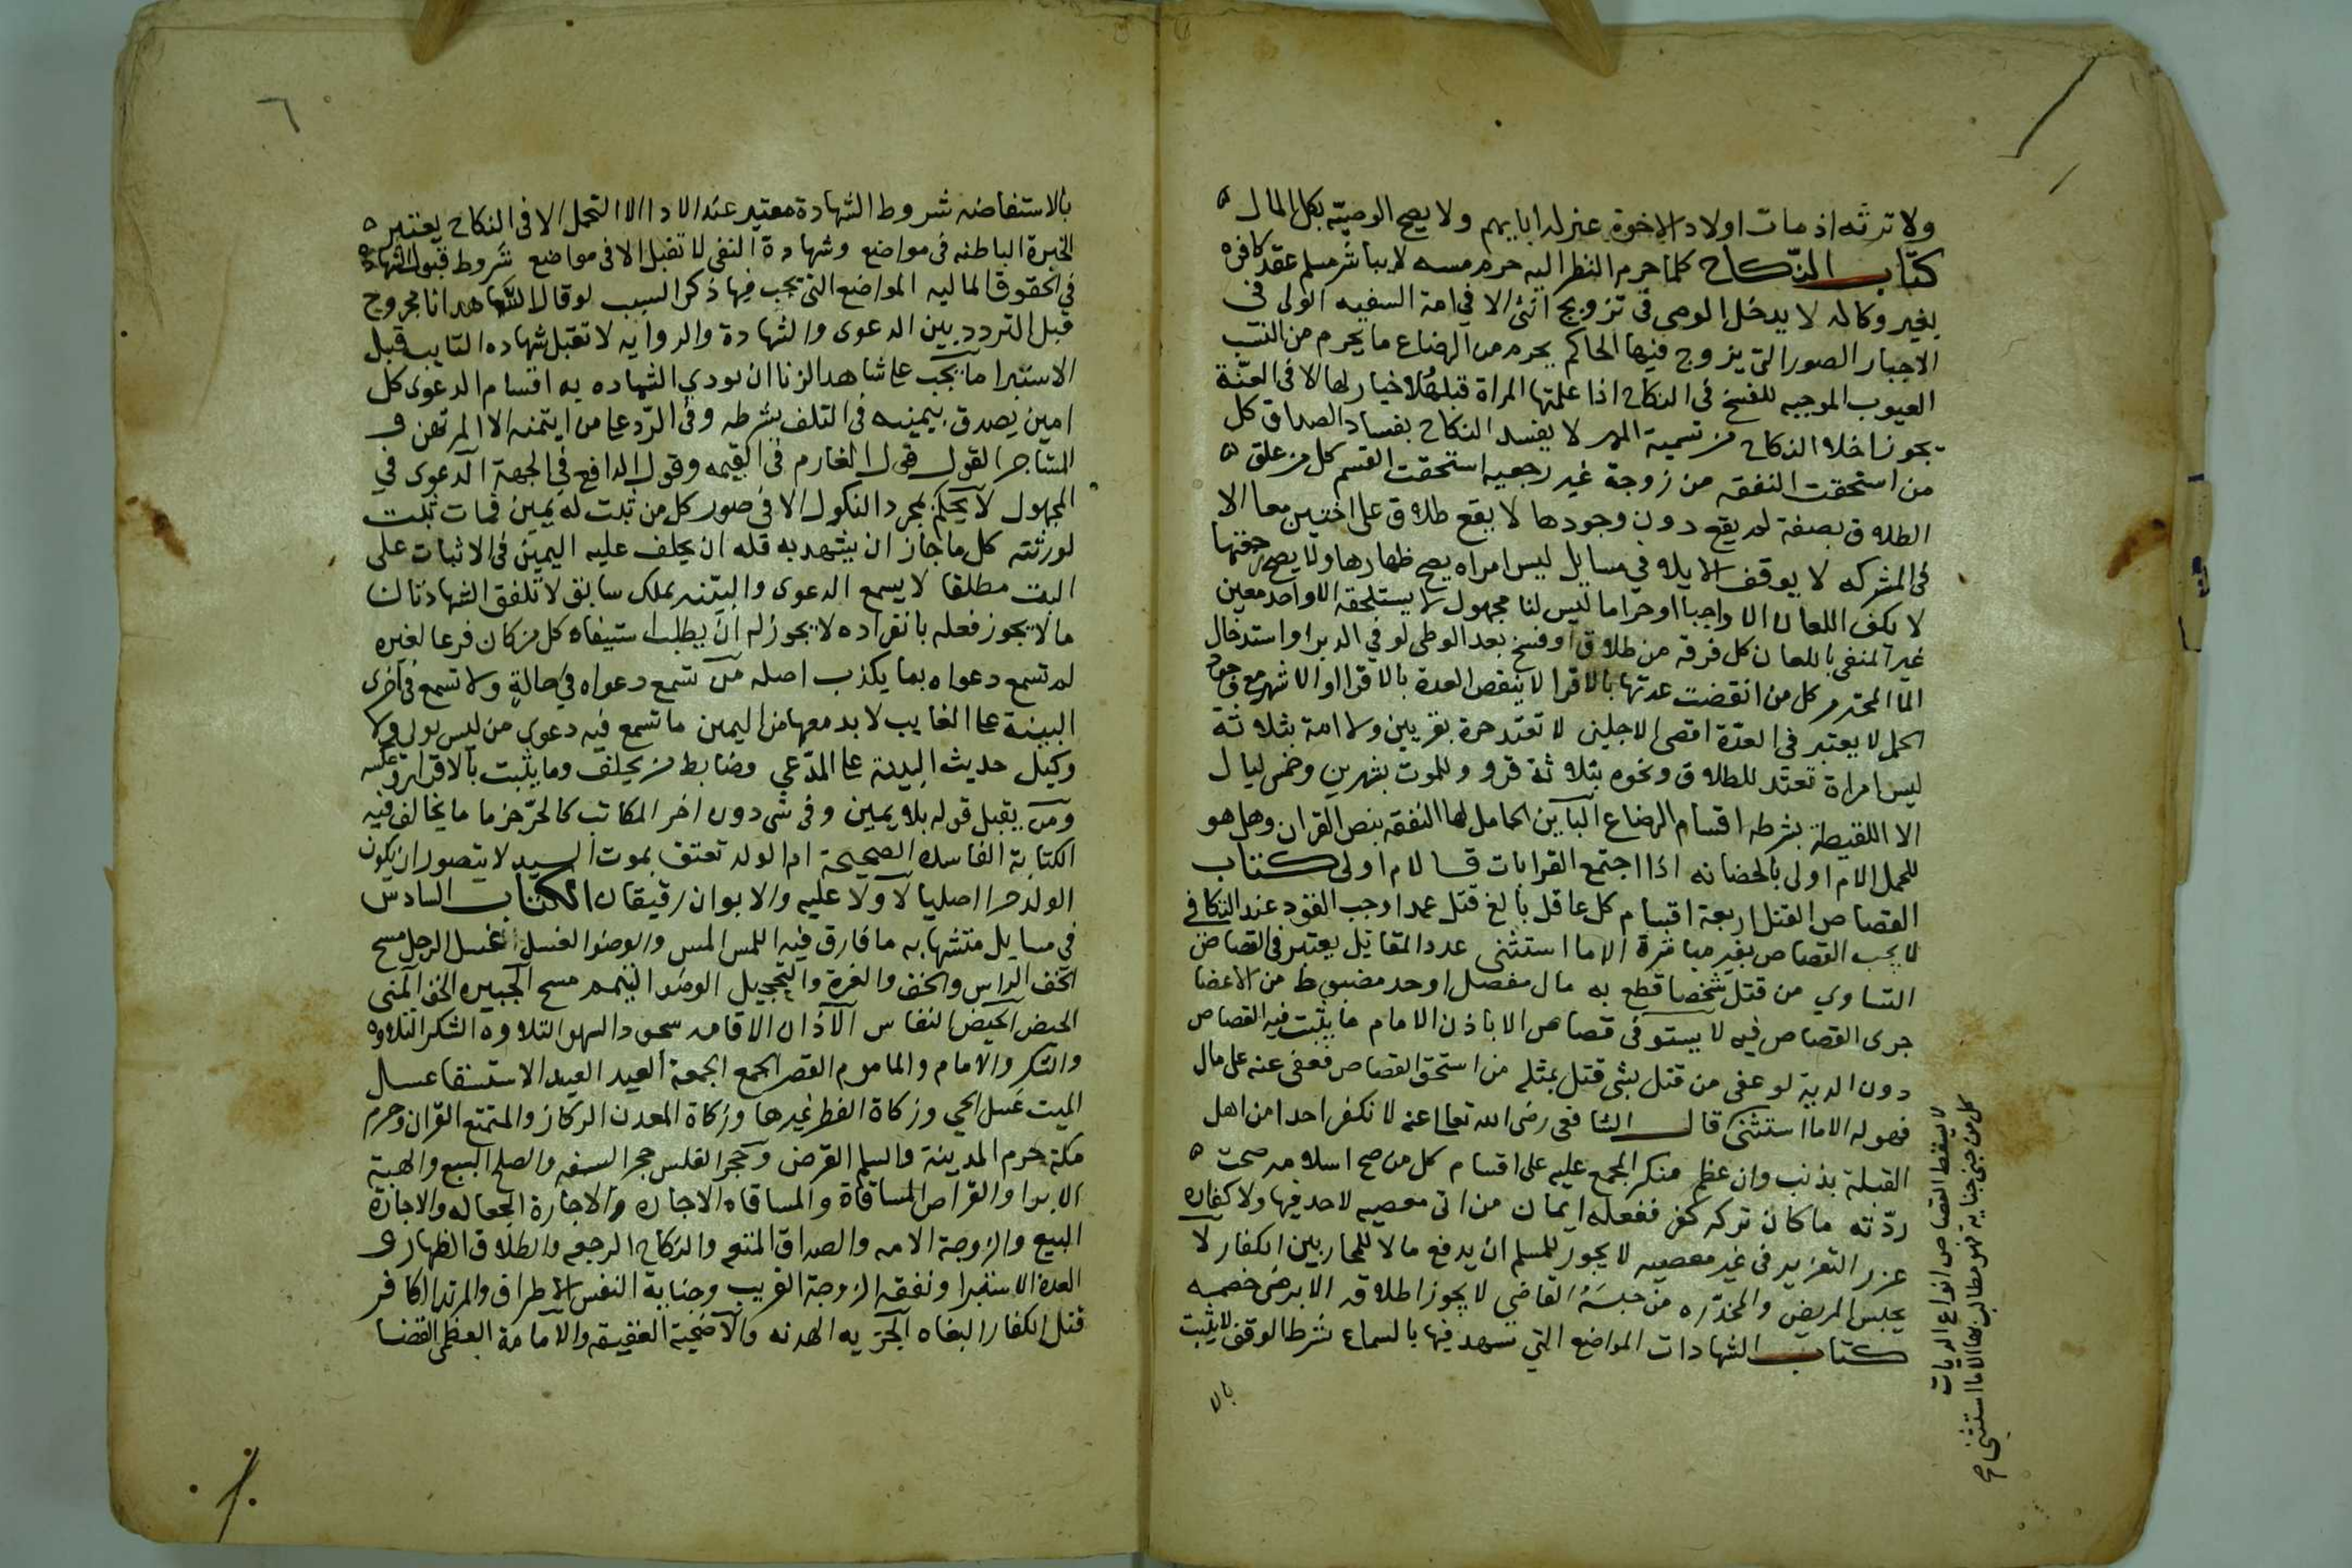 ولا ترثه اذ مات اولاد الاخوة بمنزلة ابايهم ولا يصح الوصية بكل المال
كتاب النكاح كلما حرم النظر اليه حرم مسه لا يباشر مسلم عقد كافره
بغير وكاله لا يدخل الوصي في تزويج انثى الا في امة السفيه الولي في
الاجبار الصور التي يزوج فيها الحاكم يحرم من الرضاع ما يحرم من النسب
العيوب الموجبه للفسخ في النكاح اذا علمتها المراة قبله فلا خيار لها الا في العنة
يجوز اخلاء النكاح من تسمية المهر لا يفسد النكاح بفساد الصداق كل
من استحقت النفقه من زوجة غير رجعيه استحقت القسم كل من علق
الطلاق بصفة لم يقع دون وجودها لا يقع طلاق على اختين معا الا
في المشركه لا يوقف الايلا في مسايل ليس امراه يصح ظهارها ولا يصح رجعتها
لا يكون اللعان الا واجبا او حراما ليس لنا مجهول لا يستلحقه الا واحد معين
غير المنفي باللعان كل فرقه من طلاق او فسخ بعد الوطي لو في الدبر او استدخال
الما المحترم كل من انقضت عدتها بالاقرا لا ينقص العدة بالاقرا او الاشهر مع وجود
الحمل لا يعتبر في العدة اقصى الاجلين لا تعتد حرة بقريين ولا امة بثلاثة
ليس امراة تعتد للطلاق ونحوه بثلاثة قرو وللموت بشهرين وخمس ليال
الا اللقيطة بشرطه اقسام الرضاع الباين الحامل لها النفقه بنص القران وهل هو
للحمل الام اولى بالحضانه اذا اجتمع القرابات فالام اولى كتاب
القصاص القتل اربعة اقسام كل عاقل بالغ قتل عمدا وجب القود عند التكافي
لا يجب القصاص بغير مباشرة الا ما استثنى عدد المقاتيل يعتبر في القصاص
التساوي من قتل شخصا قطع به مال مفصل او حد مضبوط من الاعضا
جرى القصاص فيه لا يستوفى قصاص الا باذن الامام ما يثبت فيه القصاص
دون الدية لو عفى من قتل بشي قتل بمثله من استحق القصاص فعفى عنه على مال
فهو له الا ما استثنى قال الشافعي رضى الله تعالى عنه لا نكفر احدا من اهل
القبلة بذنب وان عظم منكر المجمع عليه على اقسام كل من صح اسلامه صحت
ردته ما كان تركه كفر ففعله ايمان من اتى معصيه لا حد فيها ولا كفارة
عزر التعزير في غير معصيه لا يجوز للمسلم ان يدفع مالا للمحاربين الكفار لا
يحبس المريض والمخدره من حبسه القاضي لا يجوز اطلاقه الا برضى خصمه
كتاب الشهادات المواضع التي يشهد فيها بالسماع شرط الوقف لا يثبت
بالا
لا يسقط القصاص انواع الديات
كل من جنى جناية فهو مطالب بها الا ما استثنى صح
٦
بالاستفاضه شروط الشهادة معتبر عند الادا لا التحمل الا في النكاح يعتبر
الخبرة الباطنه في مواضع وشهادة النفي لا تقبل الا في مواضع شروط قبول الشهادة
في الحقوق الماليه المواضع التي يجب فيها ذكر السبب لو قال الشاهد انا مجروح
قبل التردد بين الدعوى والشهادة والروايه لا تقبل شهاده التايب قبل
الاستبرا ما يجب على شاهد الزنا ان يودي الشهاده به اقسام الدعوى كل
امين يصدق بيمينه في التلف بشرطه وفي الرد على من ايتمنه الا المرتهن و
المستاجر القول قول الغارم في القيمه وقول الدافع في الجهة الدعوى في
المجهول لا يحكم بمجرد النكول الا في صور كل من ثبت له يمين فمات ثبتت
لورثته كل ما جاز ان يشهد به فله ان يحلف عليه اليمين في الاثبات على
البت مطلقا لا يسمع الدعوى والبينه بملك سابق لا تلفق الشهادتان
ما لا يجوز فعله بانفراده لا يجوز له ان يطلب استيفاه كل من كان فرعا لغيره
لم تسمع دعواه بما يكذب اصله من تسمع دعواه في حالة ولا تسمع في اخرى
البينة على الغايب لا بد معها من اليمين ما تسمع فيه دعوى من ليس بولي ولا
وكيل حديث البينة على المدعي وضابط من يحلف وما يثبت بالاقرار وعكسه
ومن يقبل قوله بلا يمين وفي شي دون اخر المكاتب كالحر جزما ما يخالف فيه
الكتابة الفاسده الصحيحة ام الولد تعتق بموت السيد لا يتصور ان يكون
الولد حرا اصليا لا ولا عليه والابوان رقيقان الكتاب السادس
في مسايل متشابه ما فارق فيه اللمس المس والوضوا الغسل غسل الرجل مسح
الخف الراس والخف والغرة والتحجيل الوضوا التيمم مسح الجبيره الخف المني
الحيض الحيض النفاس الاذان الاقامه سجود السهو التلاوه الشكر التلاوه
والشكر والامام والماموم القصر الجمع الجمعة العيد العيد الاستسقا غسل
الميت غسل الحي وزكاة الفطر غيرها وزكاة المعدن الركاز والمتمتع القران وحرم
مكة حرم المدينة والسلم القرض وحجر الفلس حجر السفه والصلح البيع والهبة
الابرا والقراض المساقاة والمساقاه الاجاره والاجارة الجعاله والاجازة
البيع والزوجة الامه والصداق المتعه والنكاح الرجعه والطلاق الظهار و
العدة الاستبرا ونفقه الزوجة القريب وجناية النفس الاطراف والمرتد الكافر
قتل الكفار البغاه الجزيه الهدنه والاضحية العقيقه والامامة العظمى القضا